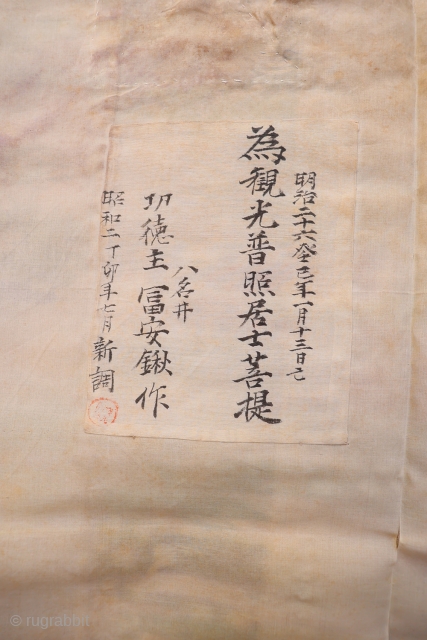 明治二十六癸巳年一月十三日亡
為観光普照居士菩提
八名井
功徳主冨安鍬作
昭和二丁卯年七月新調
© rugrabbit